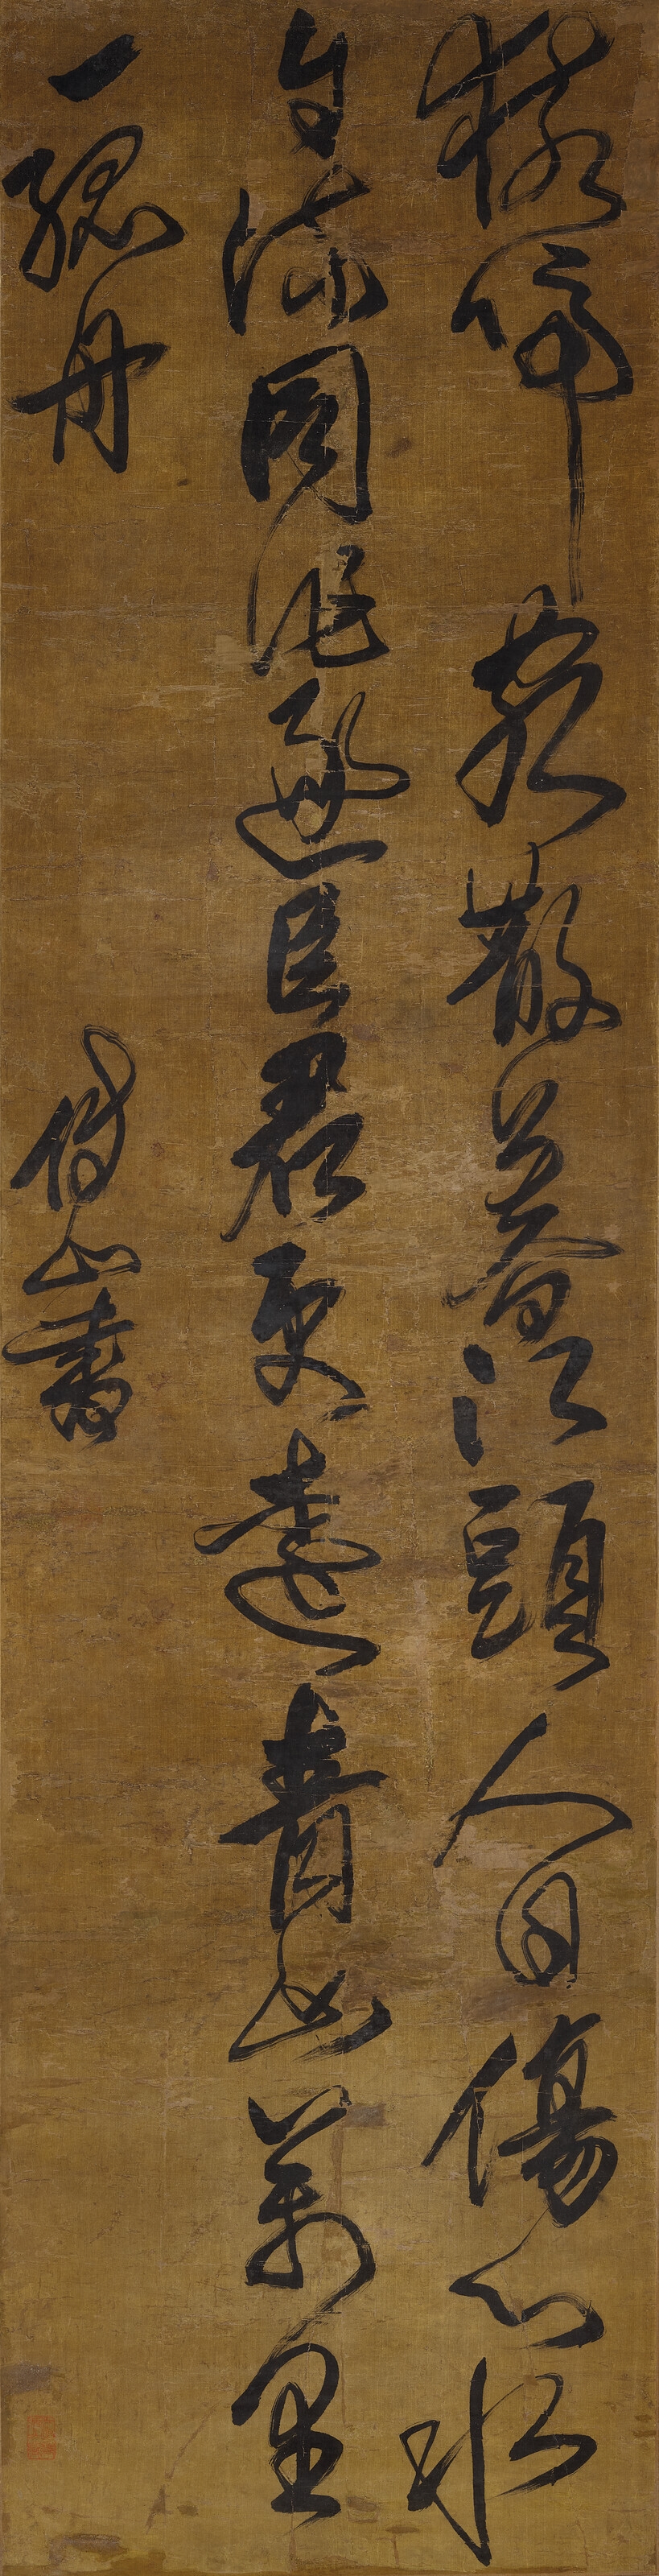 猿啼客散暮江頭人自傷心水
自流同作逐臣君更遠青山萬里
一孤舟 傅山書